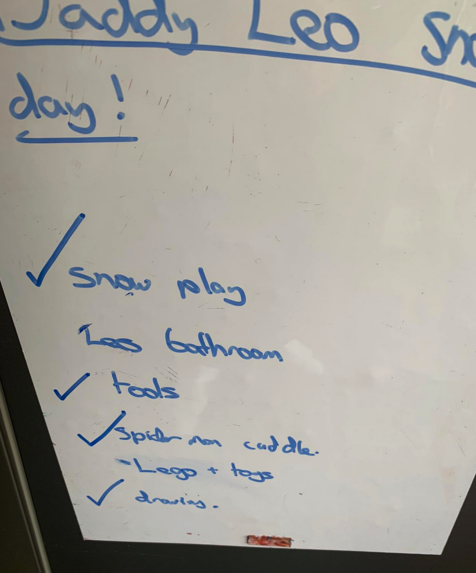 Daddy Leo Sno
day!
snow play
Leo bathroom
tools
spider man cuddle.
-Lego + toys
drawing.